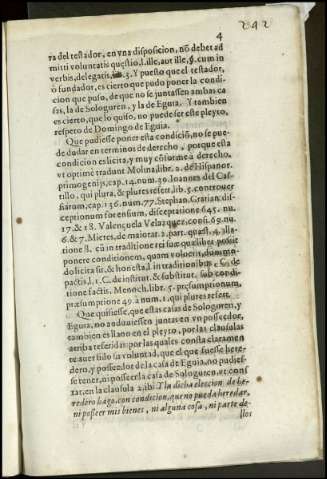 242
4
ra del testador, en vna disposicion, nõ debet ad
mitti voluntatis quęstio, l. ille, aut ille, §. cum in
verbis, delegatis, 3. Y puesto que el testador,
ò fundador, es cierto que pudo poner la condi-
cion que puso, de que no se juntassen ambas ca
sas, la de Sologuren, y la de Eguia. Y tambien
es cierto, que lo quiso, no puede ser este pleyto,
respeto de Domingo de Eguia.
Que pudiesse poner esta condiciõ, no se pue-
de dudar en terminos de derecho, porque esta
condicion es licita, y muy cõforme à derecho,
vt optimè tradunt Molina, libr. 2. de Hispanor.
primogenijs, cap. 14. num. 30. Ioannes del Cas-
tillo, qui plura, & plures refert, lib. 5. controuer
siarum, cap. 136. num. 77. Stephan. Gratian. dis-
ceptationum forensium, disceptatione 645. nu.
17. & 18. Valençuela Velazquez, cons. 69. nu.
6. & 7. Mieres, de maiorat. 2. part. quæst. 4. illa-
tione 8. cũ in traditione rei suæ quilibet possit
ponere conditionem, quam voluerit, dummo-
do licita sit, & honesta, l. in traditionibus, C. de
pactis, l. 1. C. de institut. & substitut. sub condi-
tione factis. Menoch. libr. 5. præsumptionum,
præsumptione 49. à num. 1. qui plures refert.
Que quisiesse, que estas casas de Sologuren, y
Eguia, no anduuiessen juntas en vn posseedor,
tambien es llano en el pleyto, por las clausulas
arriba referidas, por las quales consta claramen
te auer sido su voluntad, que el que fuesse here-
dero, y posseedor de la casa de Eguia, no pudies-
se tener, ni posseer la casa de Sologuren, vt cons
tat, en la clausula 2. ibi: Y la dicha eleccion de he-
redero hago, con condicion, que no pueda heredar,
ni posseer mis bienes, ni alguna cosa, ni parte de-
llos